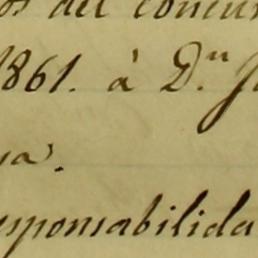 os del concur
1861. à D.ⁿ J
sa.
esponsabilida